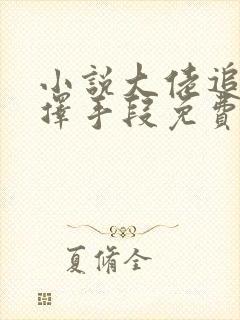 小說大佬追
擇手段免費
夏脩全